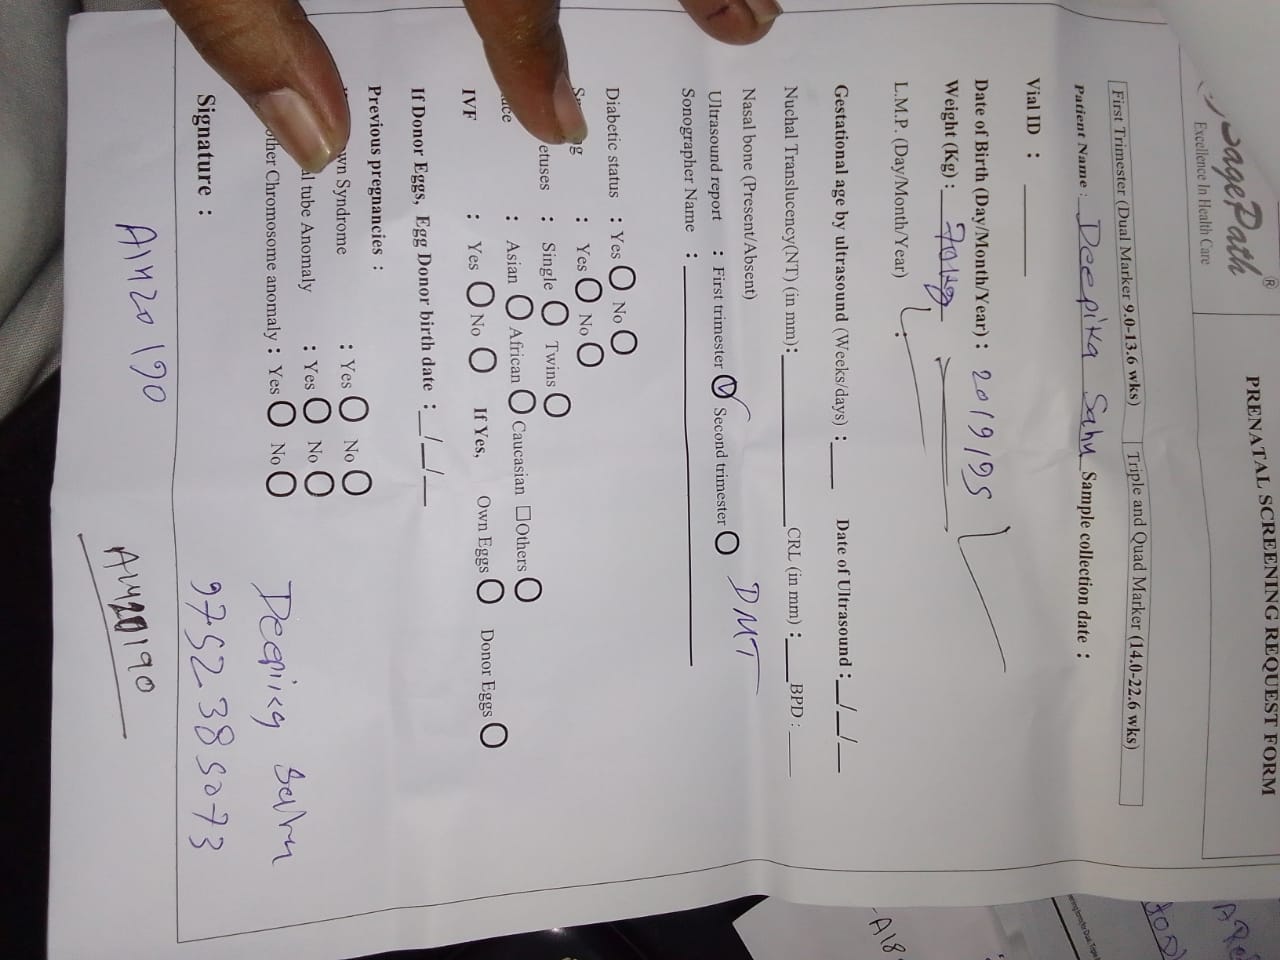 SagePath®
Excellence In Health Care
PRENATAL SCREENING REQUEST FORM
First Trimester (Dual Marker 9.0-13.6 wks) Triple and Quad Marker (14.0-22.6 wks)
Patient Name : Deepika Sahu Sample collection date :
Vial ID :
Date of Birth (Day/Month/Year) : 20/9/95
Weight (Kg) : 70Kg
L.M.P. (Day/Month/Year) :
Gestational age by ultrasound (Weeks/days) : Date of Ultrasound : / /
Nuchal Translucency(NT) (in mm): CRL (in mm) : BPD :
Nasal bone (Present/Absent)
Ultrasound report : First trimester Second trimester DMT
Sonographer Name :
Diabetic status : Yes No
: Yes No
etuses : Single Twins
: Asian African Caucasian Others
IVF : Yes No If Yes, Own Eggs Donor Eggs
If Donor Eggs, Egg Donor birth date : / /
Previous pregnancies :
wn Syndrome : Yes No
al tube Anomaly : Yes No
other Chromosome anomaly : Yes No
Deepika Sahu
9752385073
Signature :
A1420190